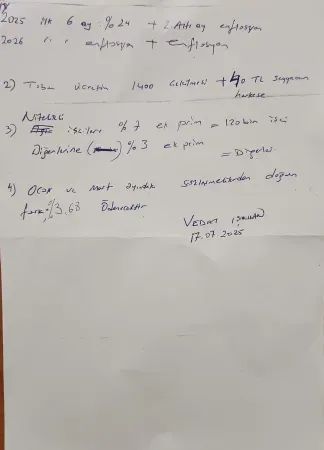 2025 ilk 6 ay : %24 + 2. Altı ay enflasyon
2026 " " enflasyon + enflasyon
2) Taban ücretin 1400 + 40 TL seyyanen
herkese
Nitelikli
3) işçilere %7 ek prim = 120 bin işçi
Diğerlerine ( ) %3 ek prim
= Diğerler
4) Ocak ve Mart ayındaki sözleşmelerden doğan
fark %3.68 Ödenecektir
VEDAT IŞIKHAN
17.07.2025